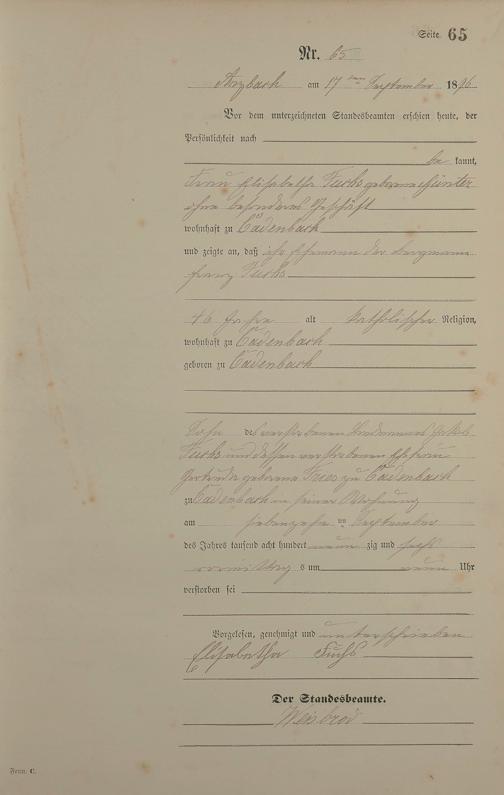 Seite 65
Nr. 65
Arzbach am 17ten September 1896
Vor dem unterzeichneten Standesbeamten erschien heute, der
Persönlichkeit nach
be kannt,
Frau Elisabetha Fuchs geborene Günter
ohne besonderes Geschäft
wohnhaft zu Cadenbach
und zeigte an, daß ihr Ehemann der Bergmann
Franz Fuchs
46 Jahre alt katholischer Religion,
wohnhaft zu Cadenbach
geboren zu Cadenbach
Sohn des verstorbenen Jakob
Fuchs und dessen verstorbenen Ehefrau
Gertruda geborene Frees zu Cadenbach
zu Cadenbach in seiner Wohnung
am siebenzehn ten September
des Jahres tausend acht hundert neun zig und sechs
vormittag s um neun Uhr
verstorben sei
Vorgelesen, genehmigt und unterschrieben
Elisabetha Fuchs
Der Standesbeamte.
Weisbrod
Form. C.